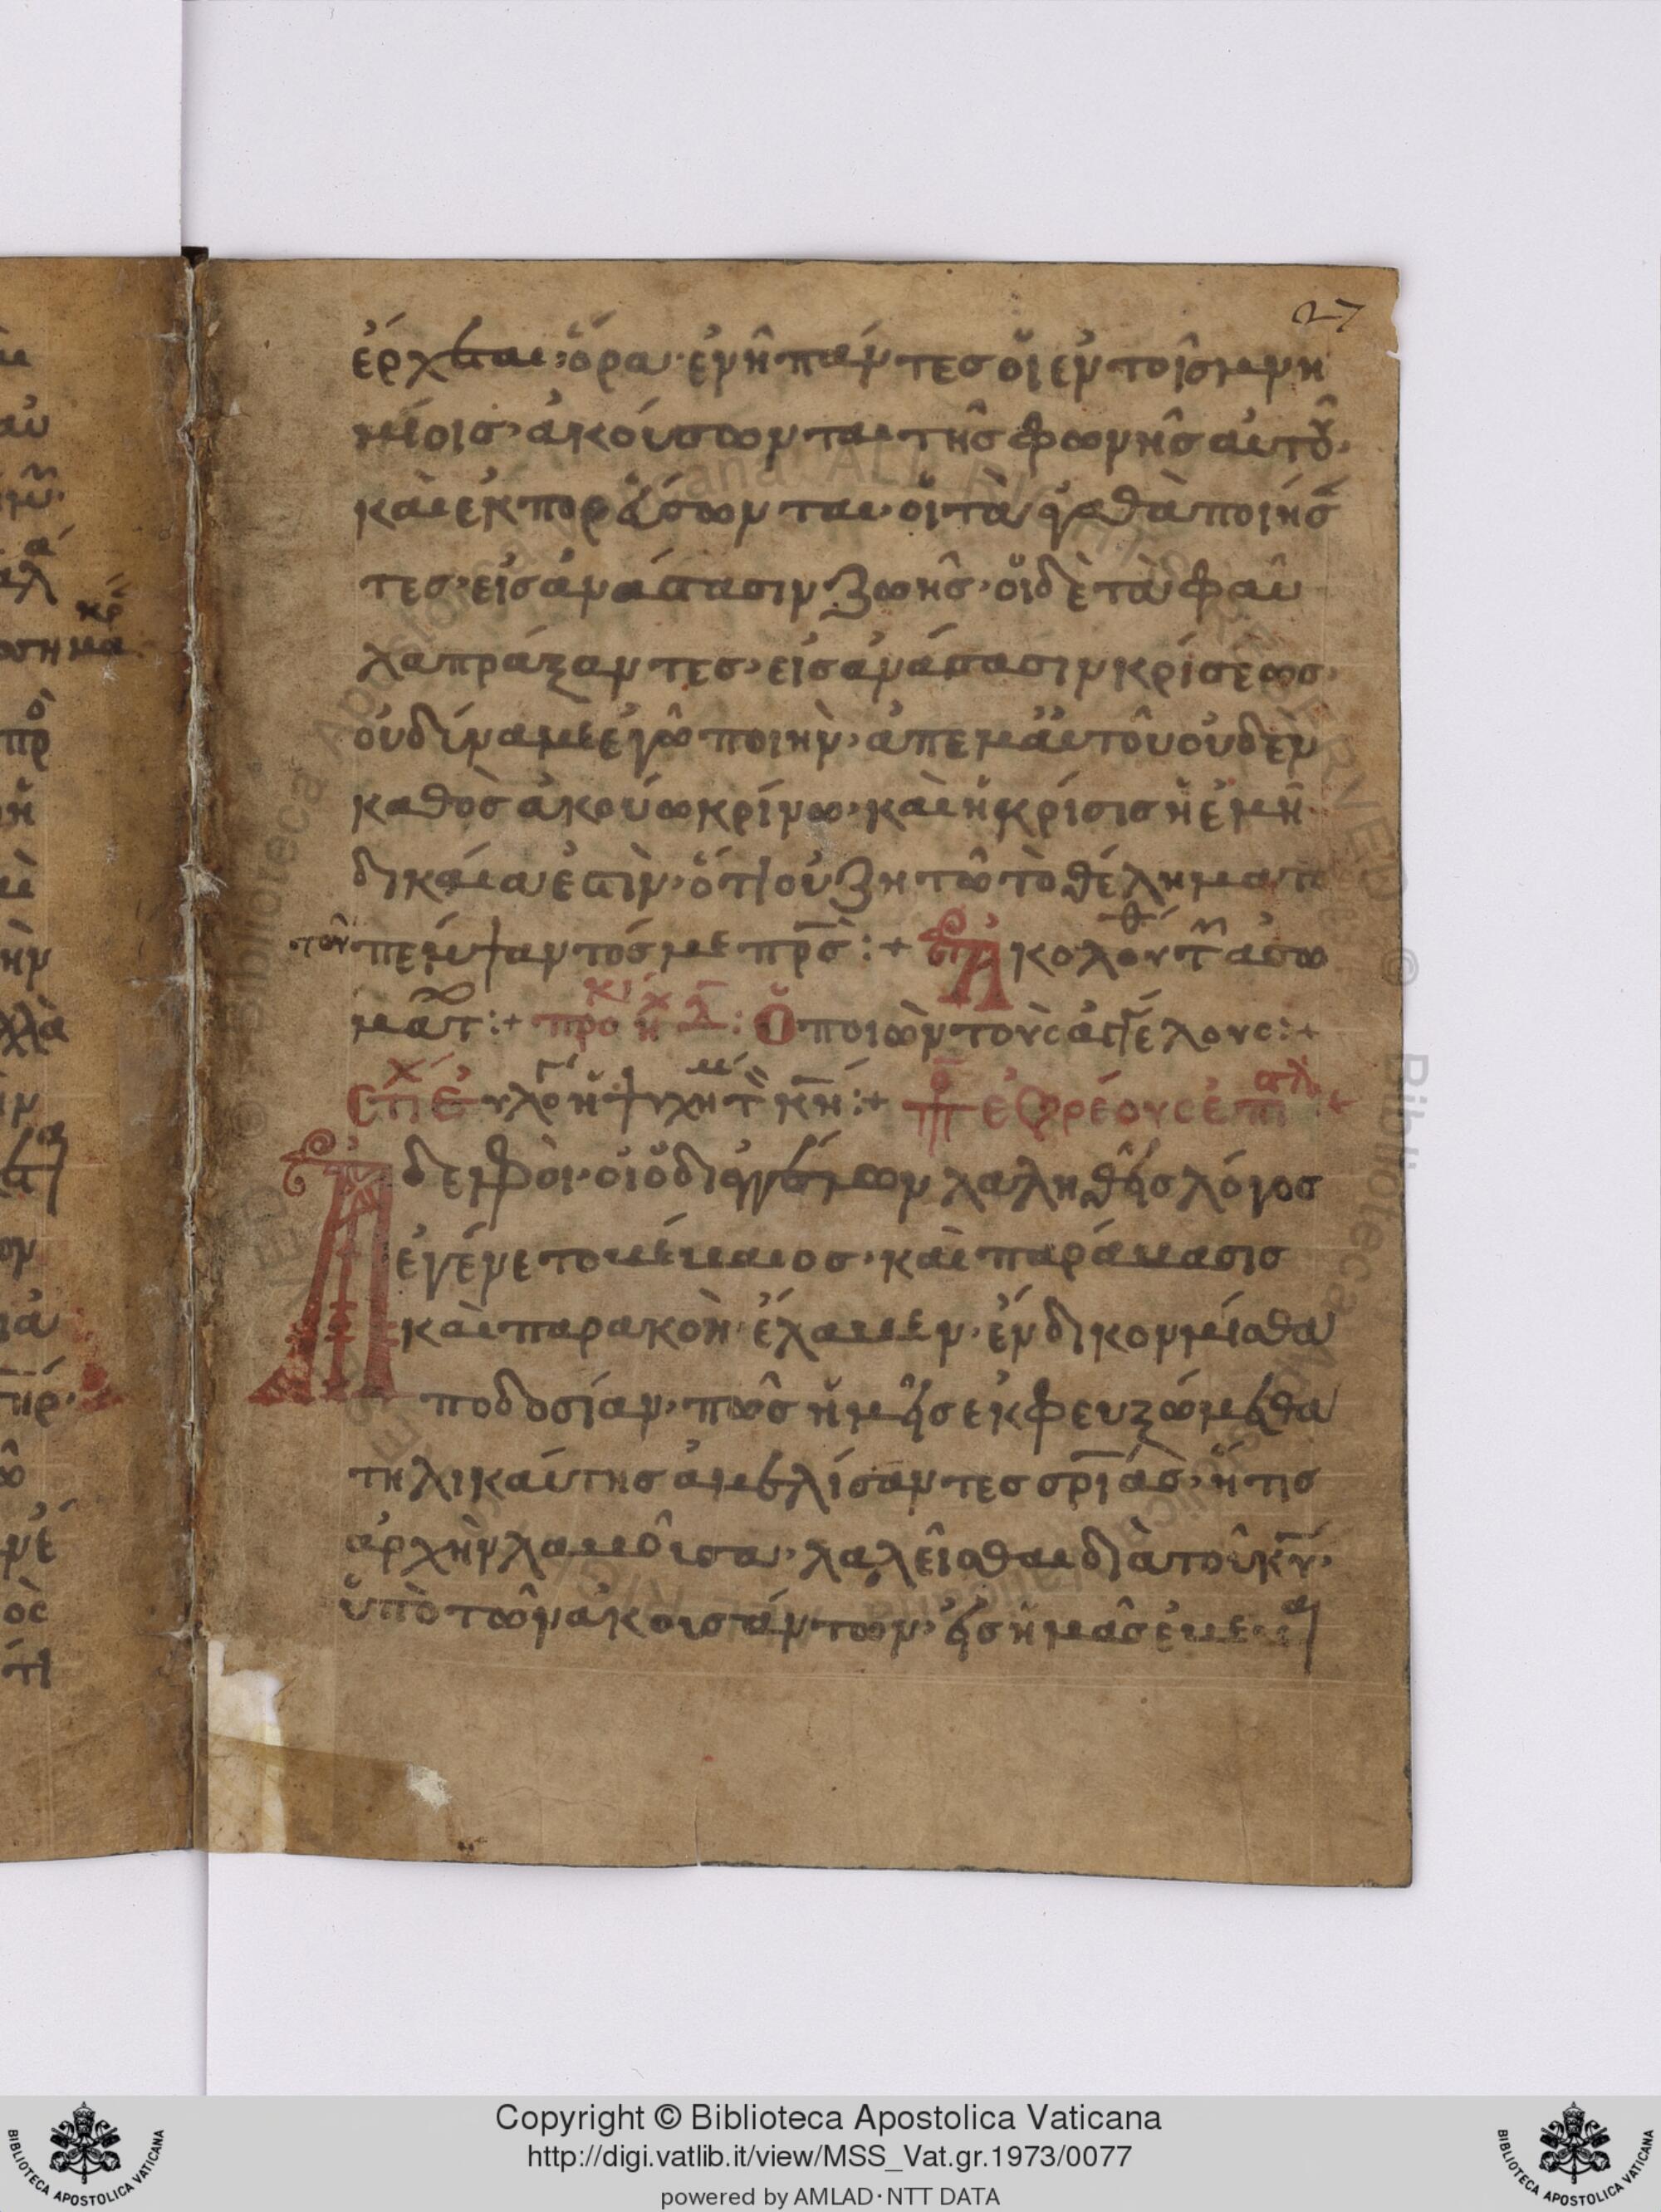 27
ἔρχεται ὅρα· ἐν ἧ πάντες οἱ ἐν τοῖς μνη
μίοις· ἀκούσωνται τῆς φωνῆς αὐτοῦ·
καὶ ἐκπορεύσωνται· οἱ τὰ ἀγαθὰ ποιήσ̅
τες· εἰς ἀνάστασιν ζωῆς· οἱ δὲ τὰ φαῦ
λα πράξαντες· εἰς ἀνάστασιν κρίσεως·
οὐ δίναμε ἐγὼ ποιὴν· ἀπ' ἐμαυτοῦ οὐδὲν
καθὸς ἀκούω κρίνω· καὶ ἡ κρίσις ἡ ἐμὴ
δικαία ἐστὶν· ὅτι οὐ ζητῶ τὸ θέλημα τὸ
τοῦ πέμψαντός με πρ̅ς̅ :+ Ἀκολουθ τ ἀσω
μάτ :+ προκι ἠχ δ̅ : Ὁ ποιῶν τοὺς ἀγγέλους :+
Στιχ Εὐλόγ ἡ ψυχή μ τ κ̅ν̅ :+ πρ ἑβρέους ἐπιστλ
Ἀδελφοὶ· εἰ ὁ δι ἀγγέλων λαληθεὶς λόγος
ἐγένετο βέβαιος· καὶ παράβασις
καὶ παρακοὴ· ἔλαβεν· ἔνδικον μισθα
ποδοσίαν· πῶς ἡμεῖς ἐκφευξώμεθα
τηλικαύτης ἀμελίσαντες σρ̅ίας· ἥτις
ἀρχὴν λαβοῦσα· λαλεῖσθαι διὰ τοῦ κ̅υ̅·
ὑπὸ τῶν ἀκουσάντων· εἰς ἡμᾶς ἐβεβαι
Copyright © Biblioteca Apostolica Vaticana
http://digi.vatlib.it/view/MSS_Vat.gr.1973/0077
powered by AMLAD·NTT DATA
BIBLIOTECA APOSTOLICA VATICANA
BIBLIOTECA APOSTOLICA VATICANA